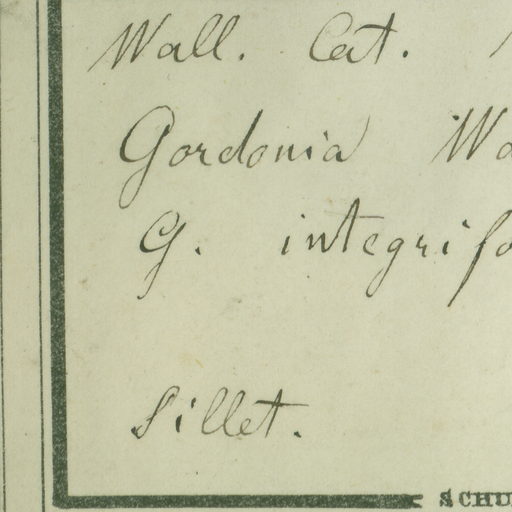 Wall. Cat.
Gordonia Wa
G. integrifo
Sillet.
SCHU